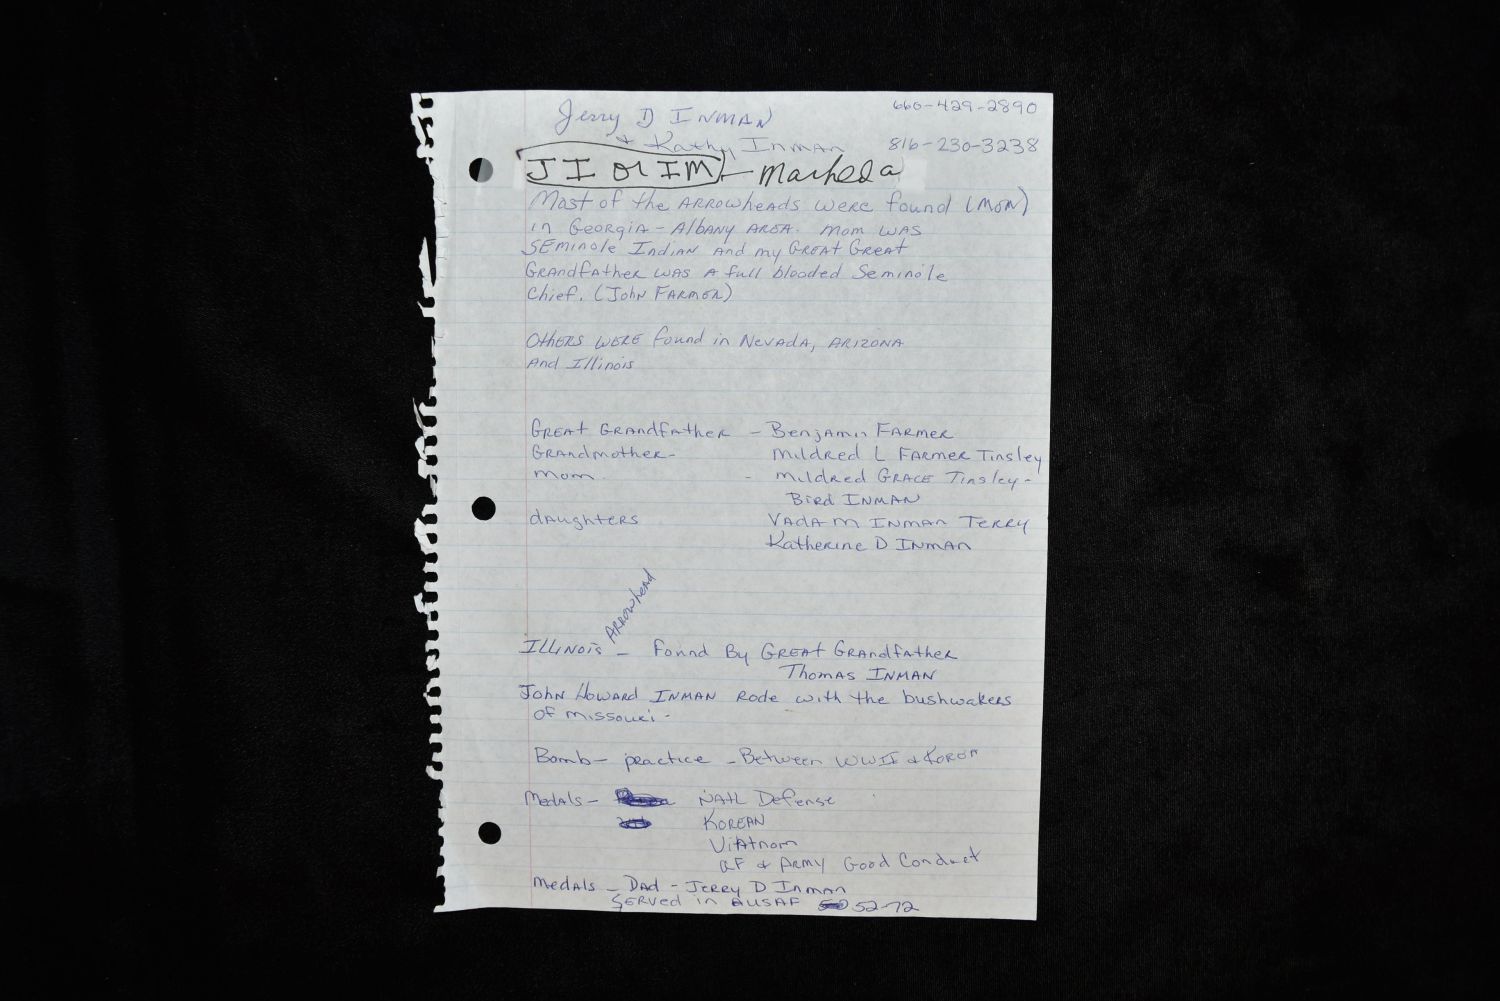 Jerry D INMAN
660-429-2890
+ Kathy INMAN
816-230-3238
JI or IM - marked a
Most of the ARROWheads were found (MOM)
in GEORGIA - AlbANY AREA. Mom WAS
SEminole Indian and my GREAT GREAT
GRANdfAther WAS A full blooded Seminole
Chief. (John FARMER)
OthERS WERE found in NEVADA, ARIZONA
And Illinois
GREAT GRANdfAther - Benjamin FARMER
GRANdmother- Mildred L FARMER Tinsley
Mom. - Mildred GRACE Tinsley-
Bird INMAN
dAughtERS VADA M INMAN TERRY
KathERINE D INMAN
ARROWhEAd
ILLINOIS - Found By GREAT GRANdfAther
Thomas INMAN
John Howard INMAN Rode with the bushwakers
of Missouri.
Bomb - practice - Between WWII & KOREA
Medals - NATL Defense
KOREAN
ViAtnam
aF & ARMY Good Conduct
Medals - DAD - JERRY D INMAN
SERVED in USAF 52-72